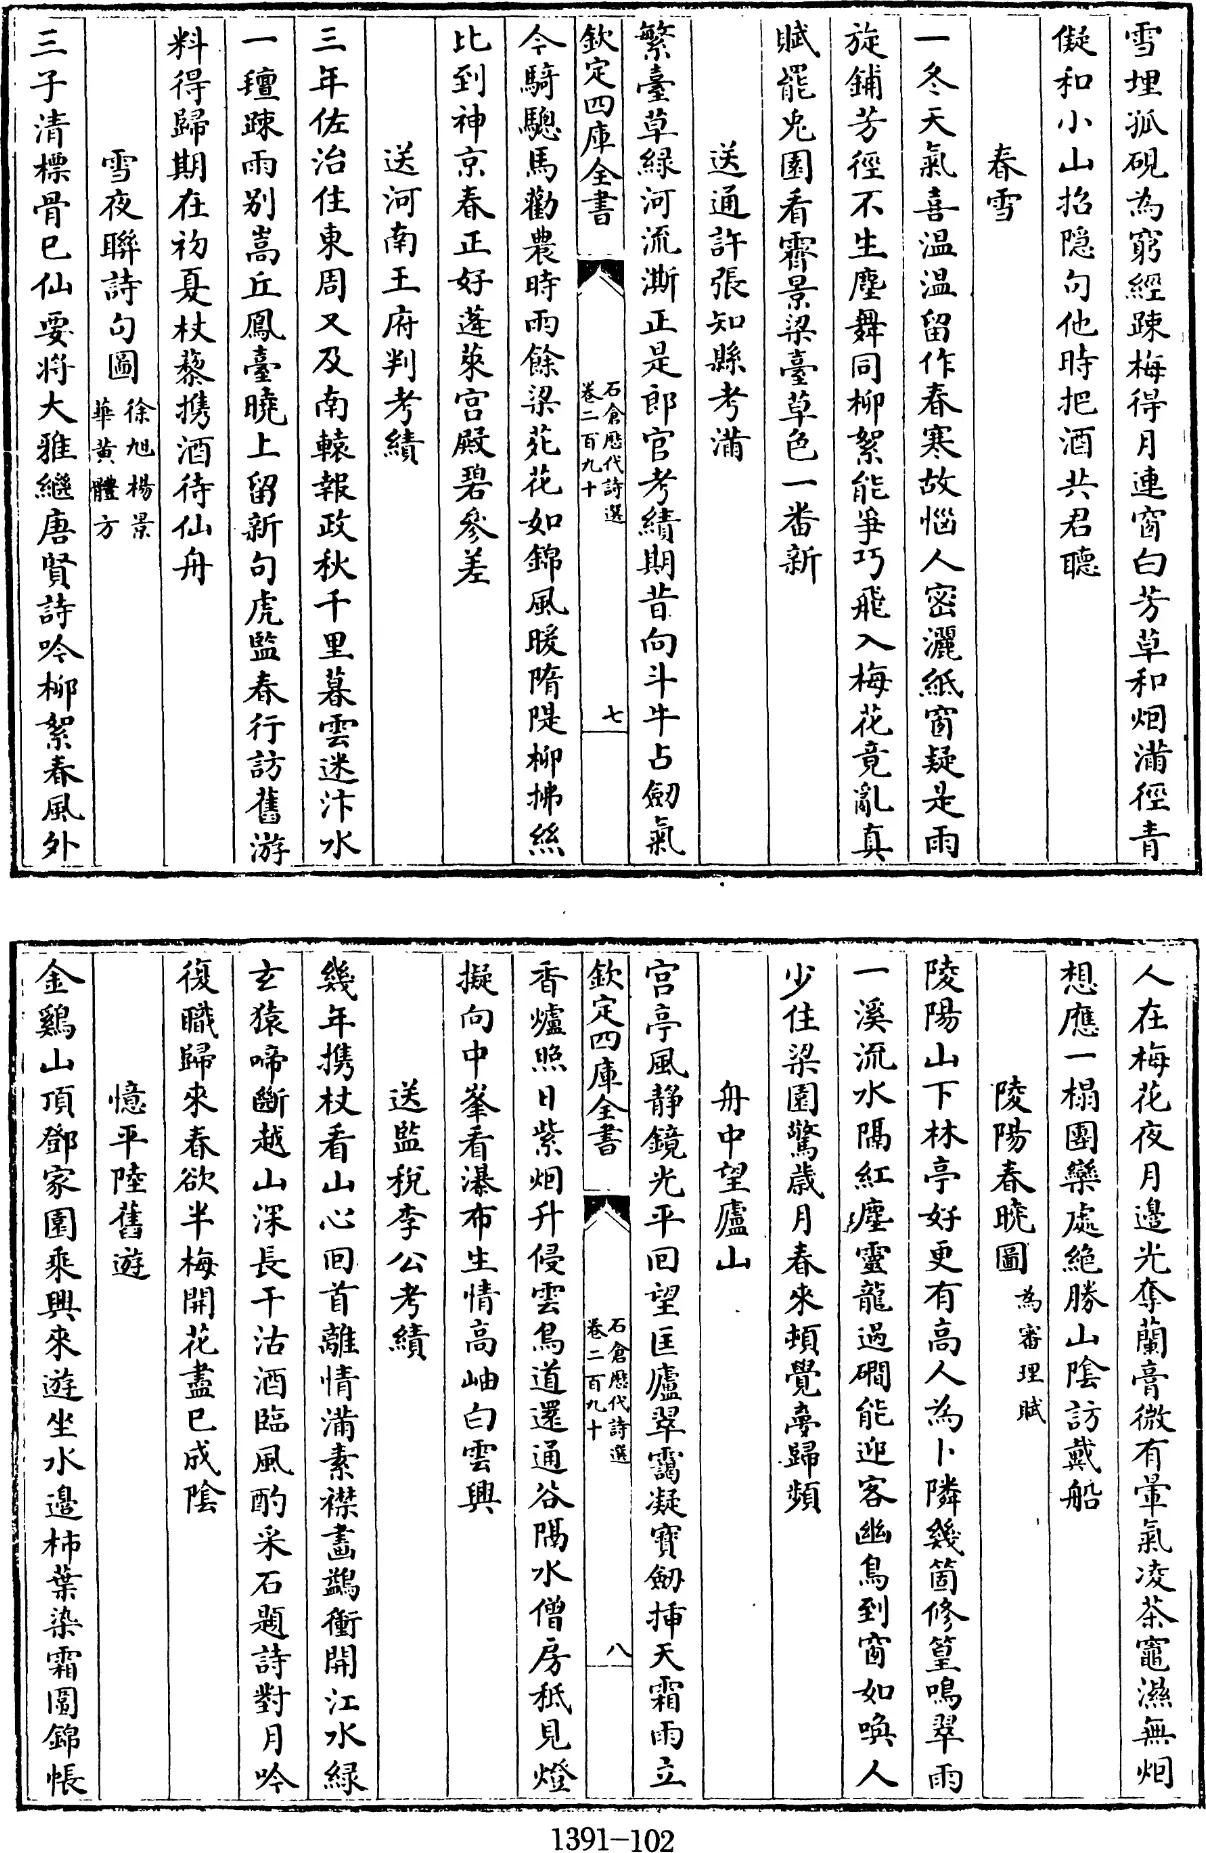 雪埋孤硯為窮經踈梅得月連窗白芳草和烟滿徑青
儗和小山招隐句他時把酒共君聽
春雪
一冬天氣喜温温留作春寒故惱人密灑紙窗疑是雨
旋鋪芳徑不生塵舞同柳絮能爭巧飛入梅花竟亂真
賦罷兎園看霽景梁臺草色一番新
送通許張知縣考滿
繁臺草緑河流澌正是郎官考績期昔向斗牛占劒氣
欽定四庫全書
石倉歴代詩選
卷二百九十
七
今騎驄馬勸農時雨餘梁苑花如錦風暖隋隄柳拂絲
比到神京春正好蓬萊宫殿碧參差
送河南王府判考績
三年佐治住東周又及南轅報政秋千里暮雲迷汴水
一𣞙踈雨别嵩丘鳳臺曉上留新句虎監春行訪舊游
料得歸期在初夏杖藜携酒待仙舟
雪夜聨詩句圖
徐旭楊景
華黄體方
三子清標骨已仙要將大雅繼唐賢詩吟柳絮春風外
人在梅花夜月邊光奪蘭膏微有暈氣凌茶竈濕無烟
想應一榻團欒處絶勝山隂訪戴船
陵陽春曉圖
為審理賦
陵陽山下林亭好更有高人為卜隣幾箇修篁鳴翠雨
一溪流水隔紅塵靈龍過磵能迎客幽鳥到窗如喚人
少住梁園驚歲月春來頓覺夢歸頻
舟中望廬山
宫亭風静鏡光平回望匡廬翠靄凝寶劒揷天霜雨立
欽定四庫全書
石倉歴代詩選
卷二百九十
八
香爐照日紫烟升侵雲鳥道還通谷隔水僧房秪見燈
擬向中峯看瀑布生情高岫白雲興
送監稅李公考績
幾年携杖看山心回首離情滿素襟畫鷁衝開江水緑
玄猿啼斷越山深長干沽酒臨風酌采石題詩對月吟
復職歸來春欲半梅開花盡已成陰
憶平陸舊遊
金鷄山頂鄧家園乘興來遊坐水邊柿葉染霜圍錦帳
1391-102